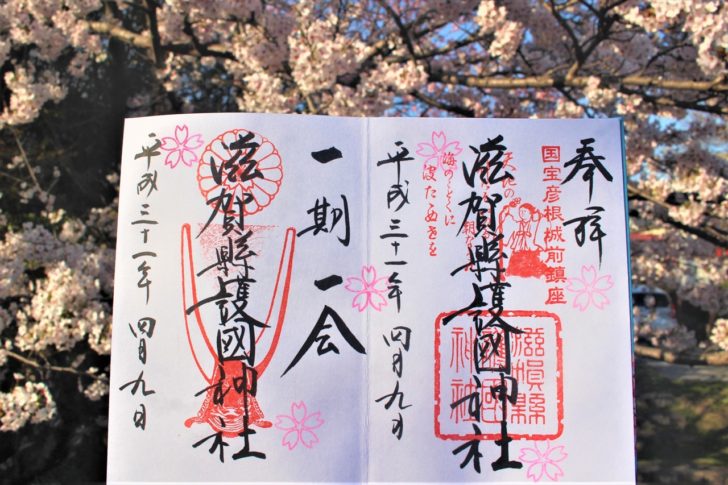 奉拝
国宝彦根城前鎮座
滋賀縣護國神社
滋賀縣護國神社
平成三十一年 四月九日
一期一会
滋賀縣護國神社
平成三十一年 四月九日